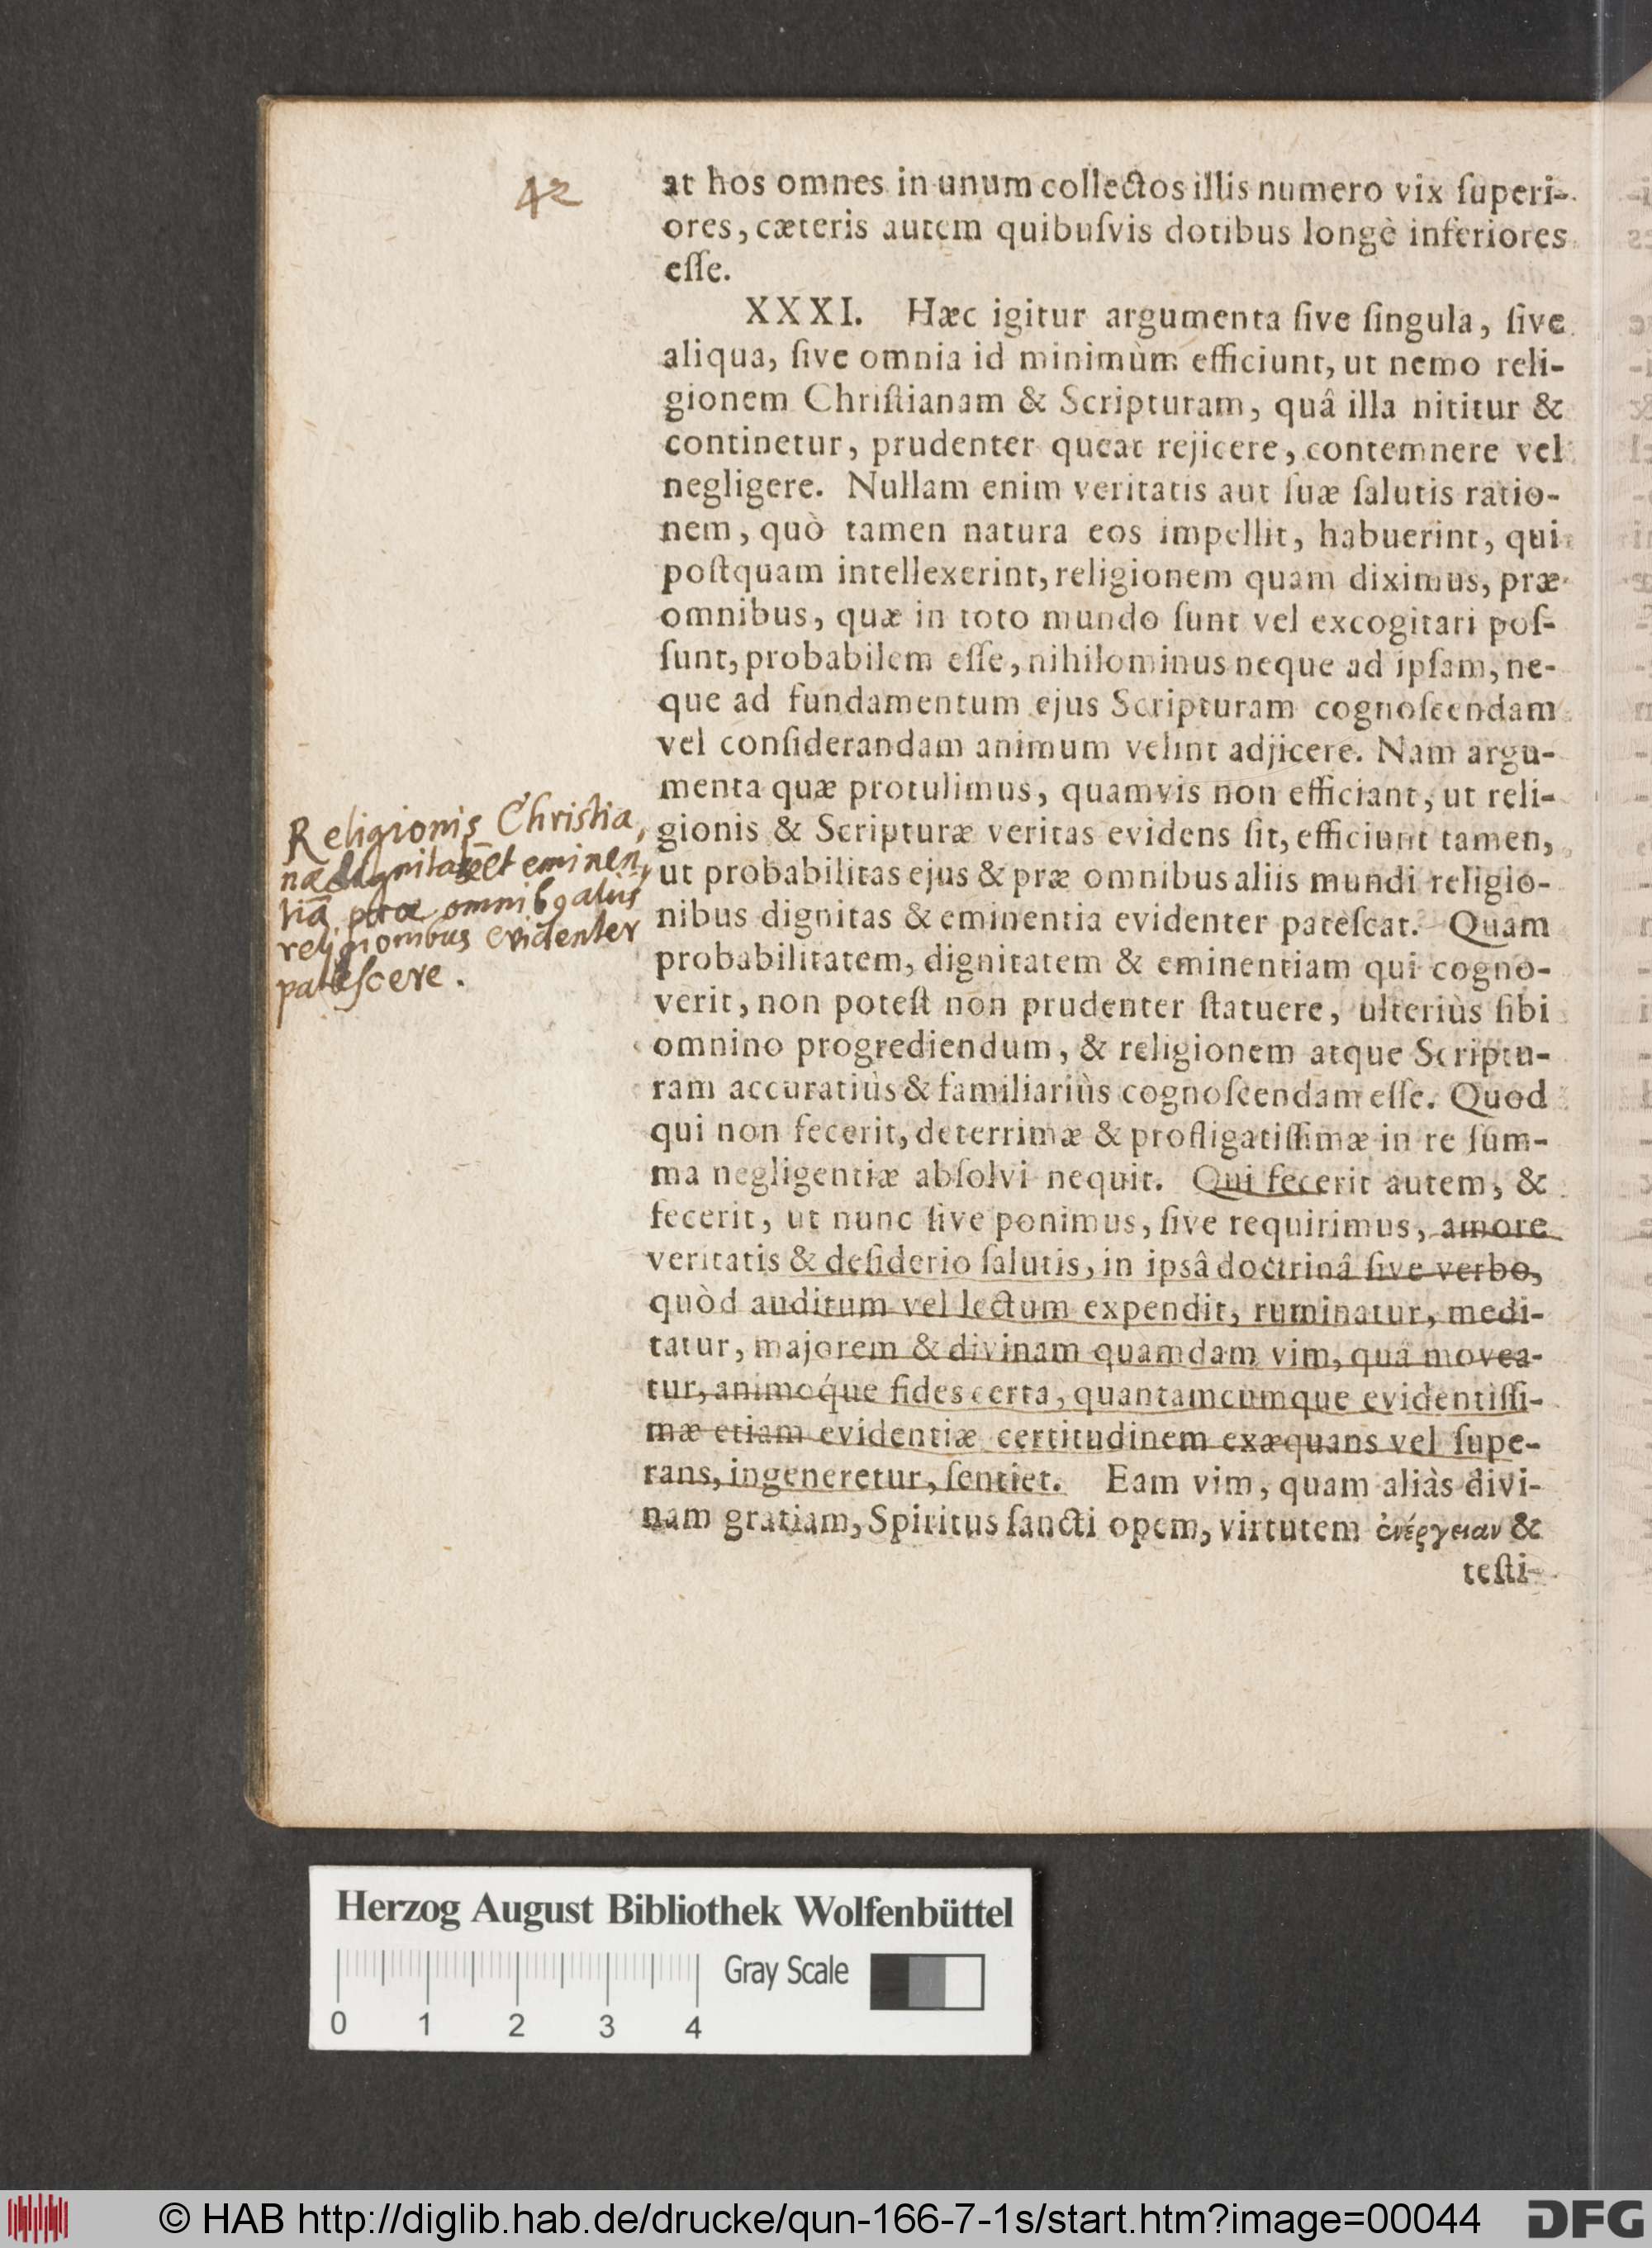 42
at hos omnes in unum collectos illis numero vix ſuperi-
ores, cæteris autem quibuſvis dotibus longè inferiores
eſſe.
XXXI. Hæc igitur argumenta ſive ſingula, ſive
aliqua, ſive omnia id minimùm efficiunt, ut nemo reli-
gionem Chriſtianam & Scripturam, quâ illa nititur &
continetur, prudenter queat rejicere, contemnere vel
negligere. Nullam enim veritatis aut ſuæ ſalutis ratio-
nem, quò tamen natura eos impellit, habuerint, qui
poſtquam intellexerint, religionem quam diximus, præ
omnibus, quæ in toto mundo ſunt vel excogitari poſ-
ſunt, probabilem eſſe, nihilominus neque ad ipſam, ne-
que ad fundamentum ejus Scripturam cognoſcendam
vel conſiderandam animum velint adjicere. Nam argu-
menta quæ protulimus, quamvis non efficiant, ut reli-
gionis & Scripturæ veritas evidens ſit, efficiunt tamen,
ut probabilitas ejus & præ omnibus aliis mundi religio-
nibus dignitas & eminentia evidenter pateſcat. Quam
probabilitatem, dignitatem & eminentiam qui cogno-
verit, non poteſt non prudenter ſtatuere, ulteriùs ſibi
omnino progrediendum, & religionem atque Scriptu-
ram accuratiùs & familiariùs cognoſcendam eſſe. Quod
qui non fecerit, deterrimæ & profligatiſſimæ in re ſum-
ma negligentiæ abſolvi nequit. Qui fecerit autem, &
fecerit, ut nunc ſive ponimus, ſive requirimus, amore
veritatis & deſiderio ſalutis, in ipsâ doctrinâ ſive verbo,
quòd auditum vel lectum expendit, ruminatur, medi-
tatur, majorem & divinam quamdam vim, quâ movea-
tur, animoq́ue fides certa, quantamcumque evidentiſſi-
mæ etiam evidentiæ certitudinem exæquans vel ſupe-
rans, ingeneretur, ſentiet. Eam vim, quam aliàs divi-
nam gratiam, Spiritus ſancti opem, virtutem ἐνέργειαν &
teſti-
Religionis Christia,
næ dignitatē et eminen,
tiā præ omnibꝯ aliis
religionibus evidenter
patescere.
Herzog August Bibliothek Wolfenbüttel
0 1 2 3 4 Gray Scale
© HAB http://diglib.hab.de/drucke/qun-166-7-1s/start.htm?image=00044 DFG